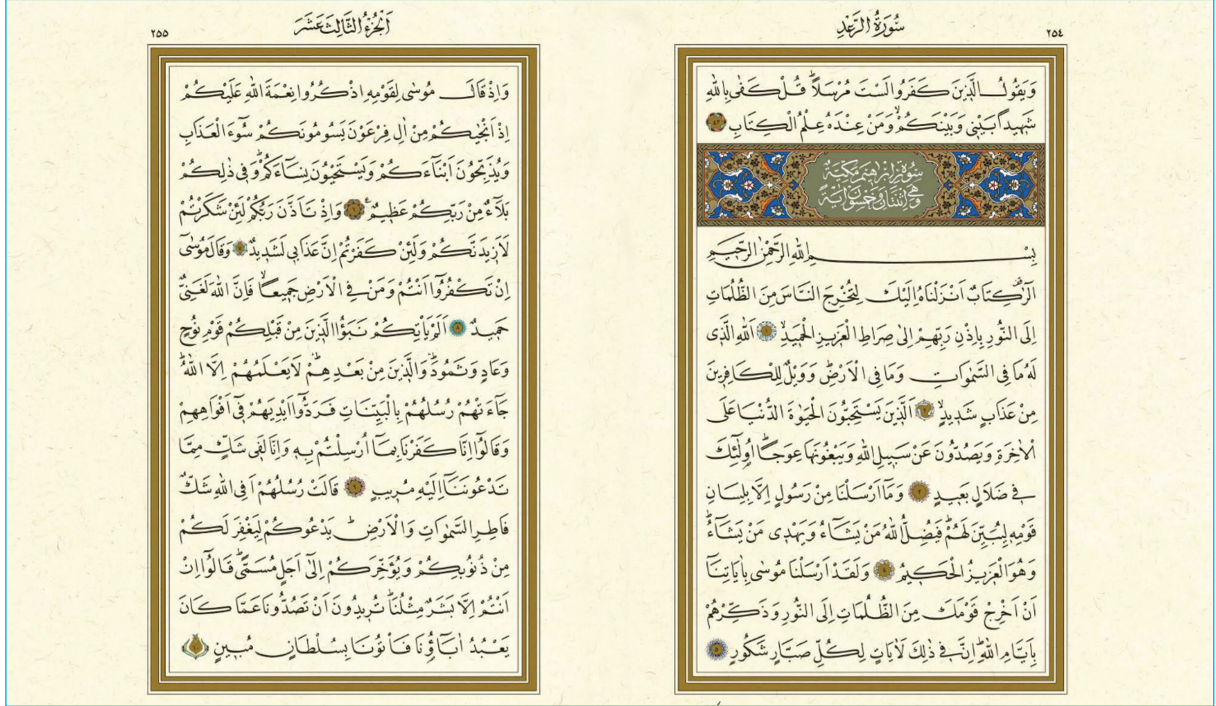 سُورَةُ الرَّعْدِ
٢٥٤
وَيَقُولُ الَّذِينَ كَفَرُوا لَسْتَ مُرْسَلاًۜ قُلْ كَفٰى بِاللّٰهِ
شَهٖيداً بَيْنٖي وَبَيْنَكُمْۙ وَمَنْ عِنْدَهُ عِلْمُ الْكِتَابِ ٤٣
سُورَةُ اِبْرٰهٖيمَ مَكِّيَّةٌ
وَهِيَ اِثْنَتَانِ وَخَمْسُونَ اٰيَةً
بِسْمِ اللّٰهِ الرَّحْمٰنِ الرَّحٖيمِ
الٓرٰ۠ كِتَابٌ اَنْزَلْنَاهُ اِلَيْكَ لِتُخْرِجَ النَّاسَ مِنَ الظُّلُمَاتِ
اِلَى النُّورِ بِاِذْنِ رَبِّهِمْ اِلٰى صِرَاطِ الْعَزٖيزِ الْحَمٖيدِۙ ١ اَللّٰهِ الَّذٖي
لَهُ مَا فِي السَّمٰوَاتِ وَمَا فِي الْاَرْضِۜ وَوَيْلٌ لِلْكَافِرٖينَ
مِنْ عَذَابٍ شَدٖيدٍۙ ٢ اَلَّذٖينَ يَسْتَحِبُّونَ الْحَيٰوةَ الدُّنْيَا عَلَى
الْاٰخِرَةِ وَيَصُدُّونَ عَنْ سَبٖيلِ اللّٰهِ وَيَبْغُونَهَا عِوَجاًۜ اُو۬لٰٓئِكَ
فٖي ضَلَالٍ بَعٖيدٍ ٣ وَمَٓا اَرْسَلْنَا مِنْ رَسُولٍ اِلَّا بِلِسَانِ
قَوْمِهٖ لِيُبَيِّنَ لَهُمْۜ فَيُضِلُّ اللّٰهُ مَنْ يَشَٓاءُ وَيَهْدٖي مَنْ يَشَٓاءُۜ
وَهُوَ الْعَزٖيزُ الْحَكٖيمُ ٤ وَلَقَدْ اَرْسَلْنَا مُوسٰى بِاٰيَاتِنَٓا
اَنْ اَخْرِجْ قَوْمَكَ مِنَ الظُّلُمَاتِ اِلَى النُّورِ وَذَكِّرْهُمْ
بِاَيَّامِ اللّٰهِۜ اِنَّ فٖي ذٰلِكَ لَاٰيَاتٍ لِكُلِّ صَبَّارٍ شَكُورٍ ٥
اَلْجُزْءُ الثَّالِثَ عَشَرَ
٢٥٥
وَاِذْ قَالَ مُوسٰى لِقَوْمِهِ اذْكُرُوا نِعْمَةَ اللّٰهِ عَلَيْكُمْ
اِذْ اَنْجٰيكُمْ مِنْ اٰلِ فِرْعَوْنَ يَسُومُونَكُمْ سُٓوءَ الْعَذَابِ
وَيُذَبِّحُونَ اَبْنَٓاءَكُمْ وَيَسْتَحْيُونَ نِسَٓاءَكُمْۜ وَفٖي ذٰلِكُمْ
بَلَٓاءٌ مِنْ رَبِّكُمْ عَظٖيمٌ۟ ٦ وَاِذْ تَاَذَّنَ رَبُّكُمْ لَئِنْ شَكَرْتُمْ
لَاَزٖيدَنَّكُمْ وَلَئِنْ كَفَرْتُمْ اِنَّ عَذَابٖي لَشَدٖيدٌ ٧ وَقَالَ مُوسٰٓى
اِنْ تَكْفُرُٓوا اَنْتُمْ وَمَنْ فِي الْاَرْضِ جَمٖيعاًۙ فَاِنَّ اللّٰهَ لَغَنِيٌّ
حَمٖيدٌ ٨ اَلَمْ يَأْتِكُمْ نَبَؤُا الَّذٖينَ مِنْ قَبْلِكُمْ قَوْمِ نُوحٍ
وَعَادٍ وَثَمُودَۜ وَالَّذٖينَ مِنْ بَعْدِهِمْۜ لَا يَعْلَمُهُمْ اِلَّا اللّٰهُۜ
جَٓاءَتْهُمْ رُسُلُهُمْ بِالْبَيِّنَاتِ فَرَدُّٓوا اَيْدِيَهُمْ فٖٓي اَفْوَاهِهِمْ
وَقَالُٓوا اِنَّا كَفَرْنَا بِمَٓا اُرْسِلْتُمْ بِهٖ وَاِنَّا لَفٖي شَكٍّ مِمَّا
تَدْعُونَنَٓا اِلَيْهِ مُرٖيبٍ ٩ قَالَتْ رُسُلُهُمْ اَفِي اللّٰهِ شَكٌّ
فَاطِرِ السَّمٰوَاتِ وَالْاَرْضِۜ يَدْعُوكُمْ لِيَغْفِرَ لَكُمْ
مِنْ ذُنُوبِكُمْ وَيُؤَخِّرَكُمْ اِلٰٓى اَجَلٍ مُسَمًّىۜ قَالُٓوا اِنْ
اَنْتُمْ اِلَّا بَشَرٌ مِثْلُنَاۜ تُرٖيدُونَ اَنْ تَصُدُّونَا عَمَّا كَانَ
يَعْبُدُ اٰبَٓاؤُ۬نَا فَأْتُونَا بِسُلْطَانٍ مُبٖينٍ ١٠